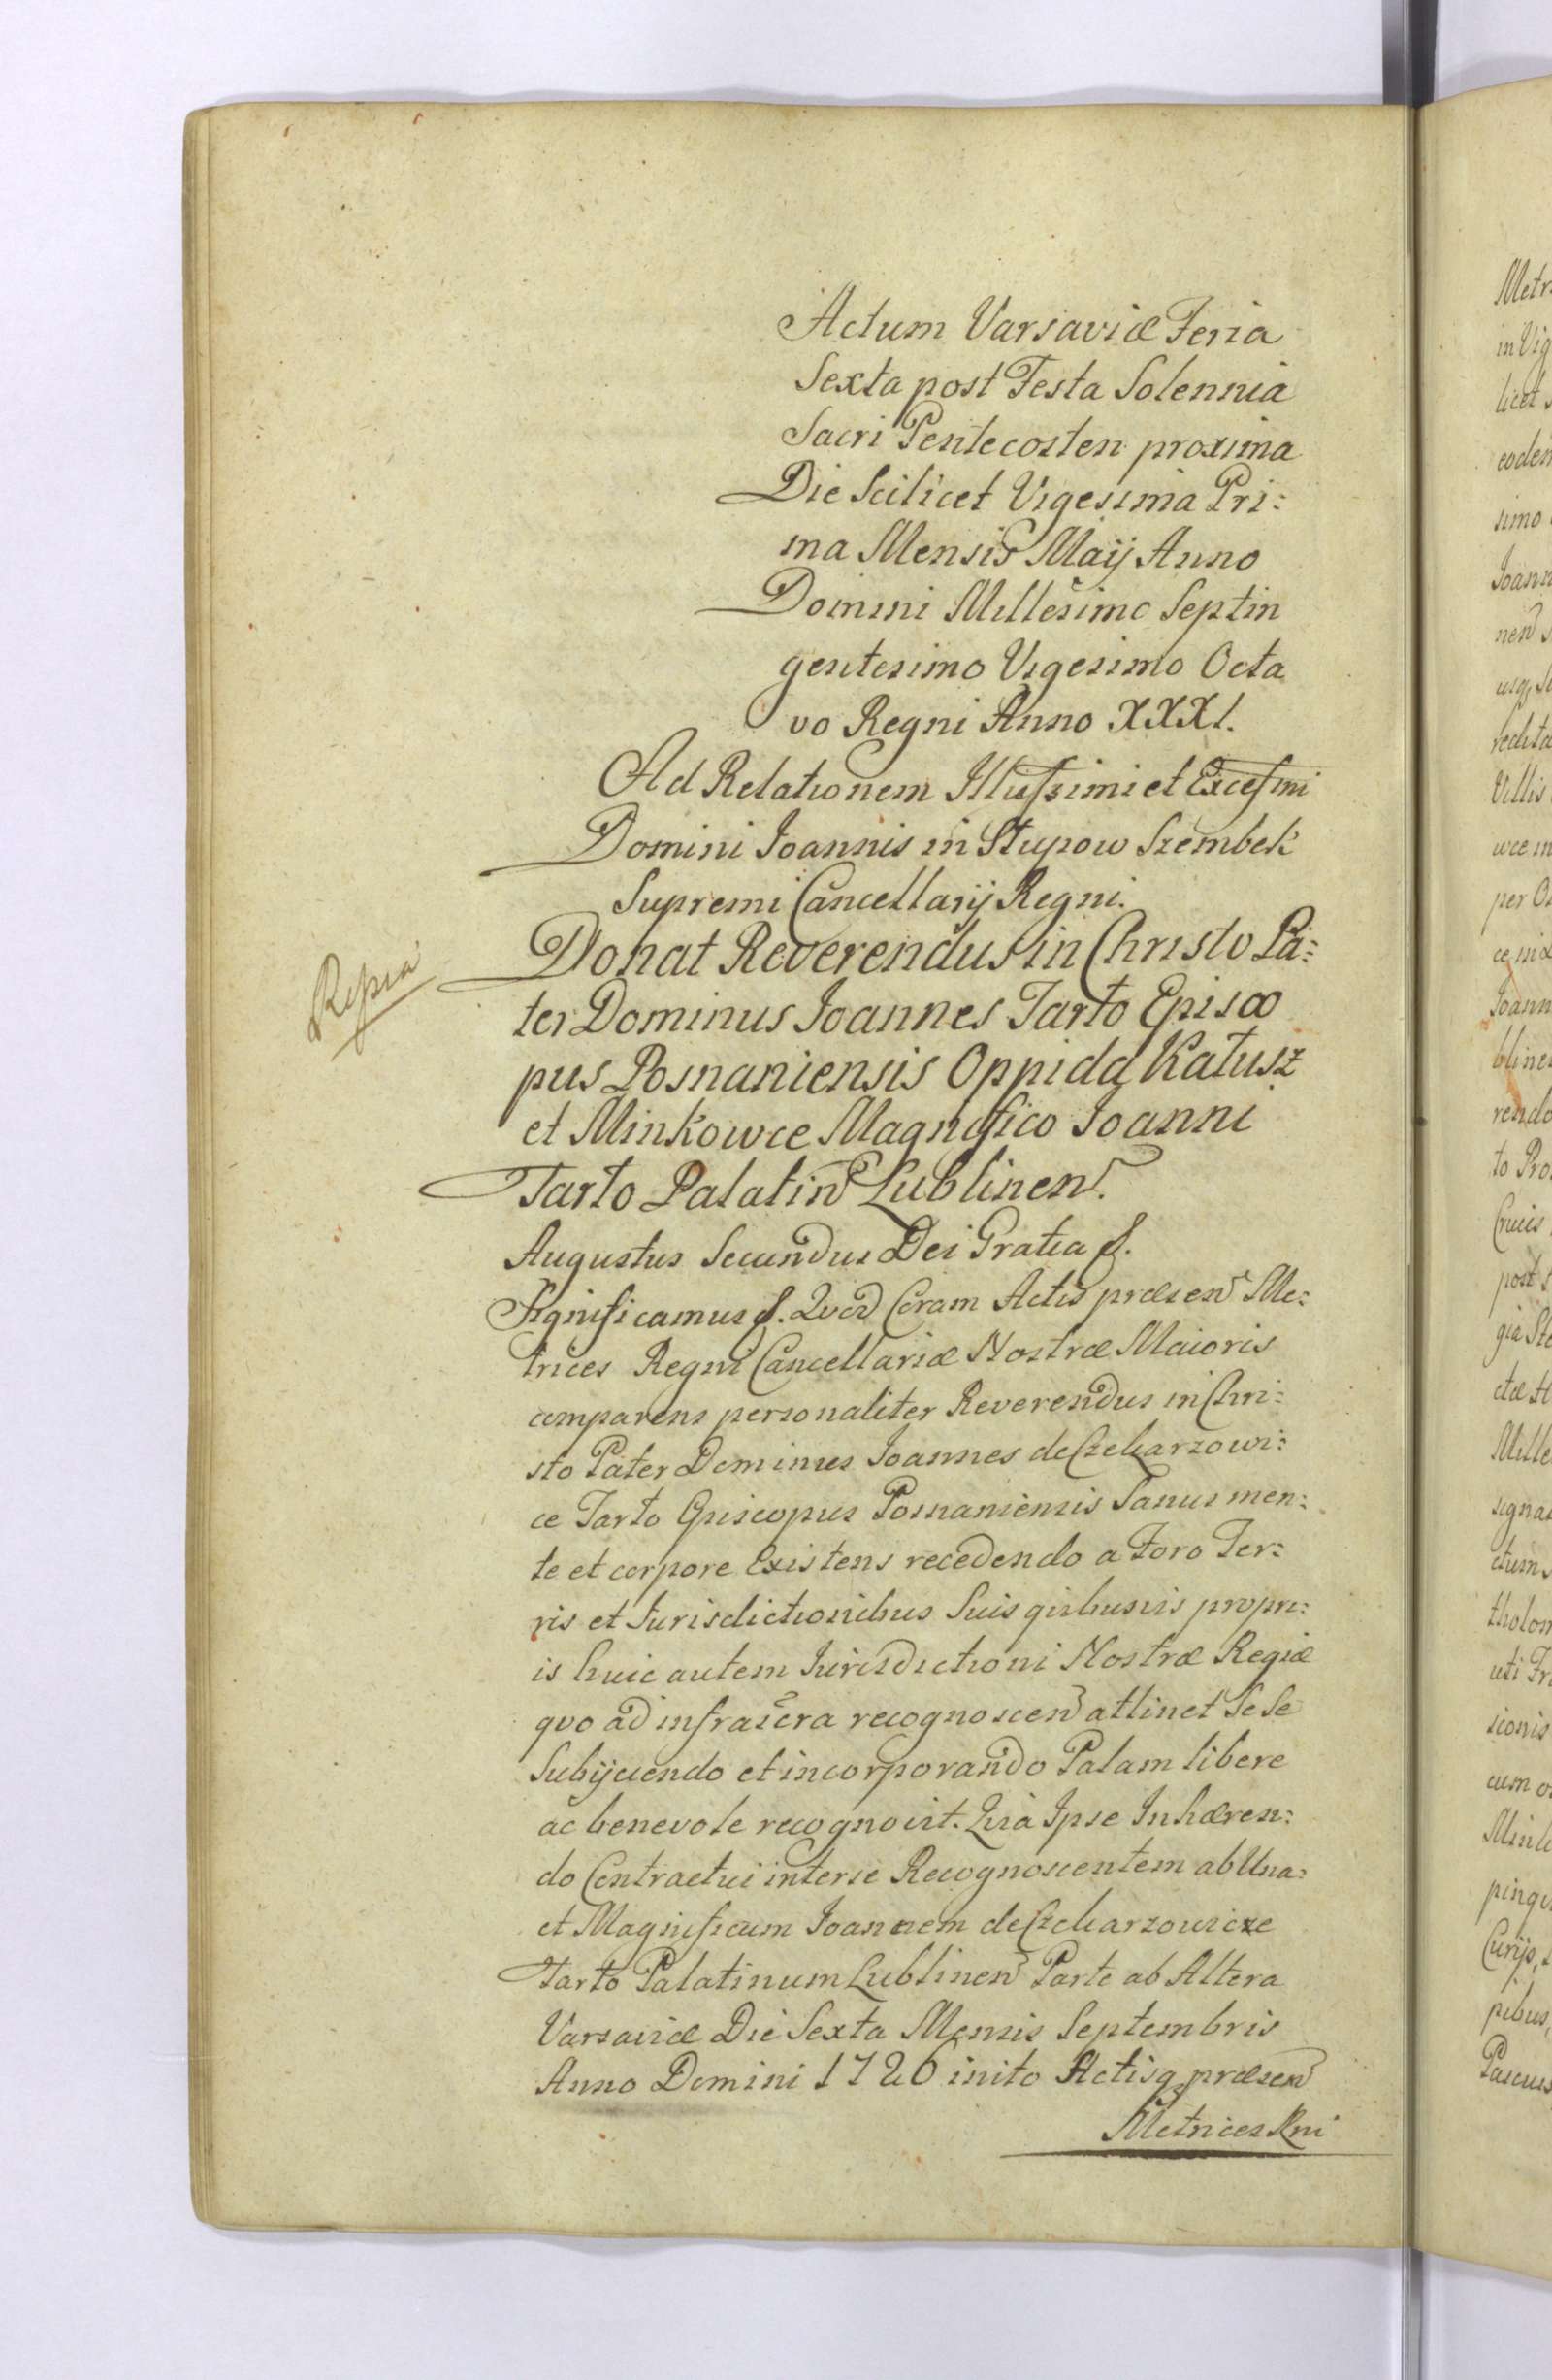 Actum Varsaviæ Feria
Sexta post Festa Solennia
Sacri Pentecosten proxima
Die Scilicet Vigesima Pri:
ma Mensis Maij Anno
Domini Millesimo Septin
gentesimo Vigesimo Octa
vo Regni Anno XXXI.
Ad Relationem Illussimi et Excessmi
Domini Joannis in Słupow Szembek
Supremi Cancellarij Regni.
Donat Reverendus in Christo Pa:
ter Dominus Joannes Tarło Episco
pus Posnaniensis Oppida Katusz
et Minkowce Magnifico Joanni
Tarło Palatin Lublinen.
Augustus Secundus Dei Gratia &.
Significamus &. Quod Coram Actis præsen Me:
trices Regni Cancellariæ Nostræ Maioris
comparens personaliter Reverendus in Chri:
sto Pater Dominus Joannes de Czekarzowi:
ce Tarło Episcopus Posnaniensis Sanus men:
te et corpore Existens recedendo a Foro Ter:
ris et Jurisdictionibus Suis quibusvis propri:
is huic autem Jurisdictioni Nostræ Regiæ
quo ad infrascra recognoscen attinet Se Se
Subijciendo et incorporando Palam libere
ac benevole recognovit. Quia Ipse Inhæren:
do Contractui inter se Recognoscentem ab Una:
et Magnificum Joannem de Czekarzowicze
Tarło Palatinum Lublinen Parte ab Altera
Varsaviæ Die Sexta Mensis Septembris
Anno Domini 1726 inito Actisq præsen
Metrices Rni
Metr
in Vig
licet
eoden
simo
Joann
nen
usq
redita
Villis
wce in
per
ce
Joann
bline
rendo
to Pro
Crucis
post
gia
ctæ
Mille
signa
ctum
tholom
uti Fr
sionis
cum
Mink
pingu
Curijs
pibus,
Pascuis